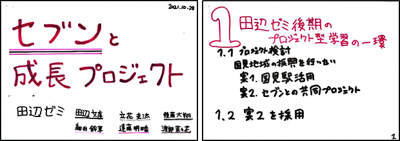 2021.10.28
セブンと
成長プロジェクト
田辺ゼミ
1 田辺ゼミ後期の
プロジェクト型学習の一環
1.1 プロジェクト検討
国見地域の振興を行いたい
案1. 国見駅活用
案2. セブンとの共同プロジェクト
1.2 案2を採用
2